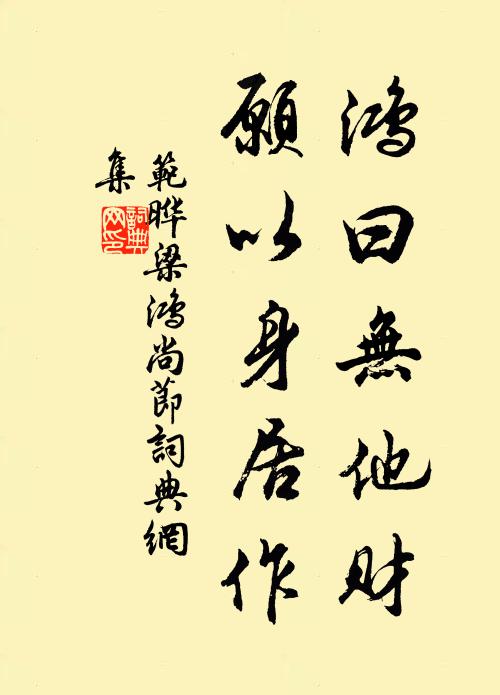 鴻曰無他财
願以身居作
範曄梁鴻尚節詞典網
集
詞典
网印